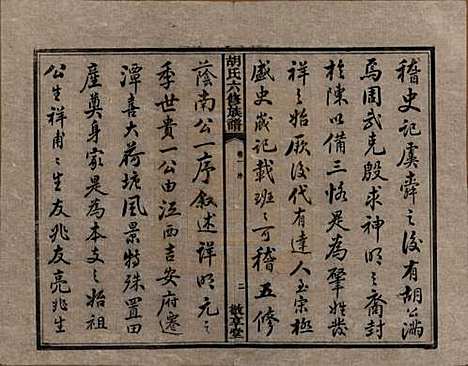 稽史記虞舜之後有胡公滿
焉周武克殷求神明之裔封
於陳以備三恪是為肇姓發
祥之始厥後代有達人玉宗極
盛史或記載班班可稽五修
胡氏六修族譜
卷一 序
二
敦享堂
蔭南公一序叙述詳明元之
季世貴一公由江西吉安府遷
潭喜大荷塘風景特殊置田
產奠身家是為本支之始祖
公生祥甫甫生友兆友亮兆生